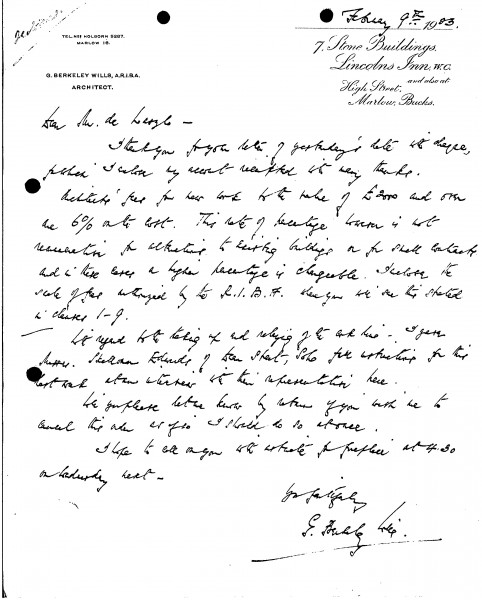 TEL. Nos HOLBORN 5287.
MARLOW 18.
G. BERKELEY WILLS, A.R.I.B.A.
ARCHITECT.
February 9th 1923.
7, Stone Buildings,
Lincolns Inn, W.C.
and also at
High Street,
Marlow, Bucks.
Dear Mr. de
I thank you for your letter of yesterday's date with cheque,
for which I enclose my account receipted with many thanks.
Architects' fees for new work to the value of £2000 and over
are 6% on the cost. This rate of percentage however is not
remuneration for alterations to existing buildings or for small contracts
and in these cases a higher percentage is chargeable. I enclose the
scale of fees authorized by the R.I.B.A. where you will see this stated
in clauses 1-9.
With regard to the taking up and relaying of the I gave
Messrs. of Dean Street, Soho instructions for this
work at an interview with their representative here.
Will you please let me know by return if you wish me to
cancel this order as if so I should do so at once.
I hope to call on you with estimate for fireplace at 4.30
on Wednesday next -
Yrs faithfully
G. Berkeley Wills.